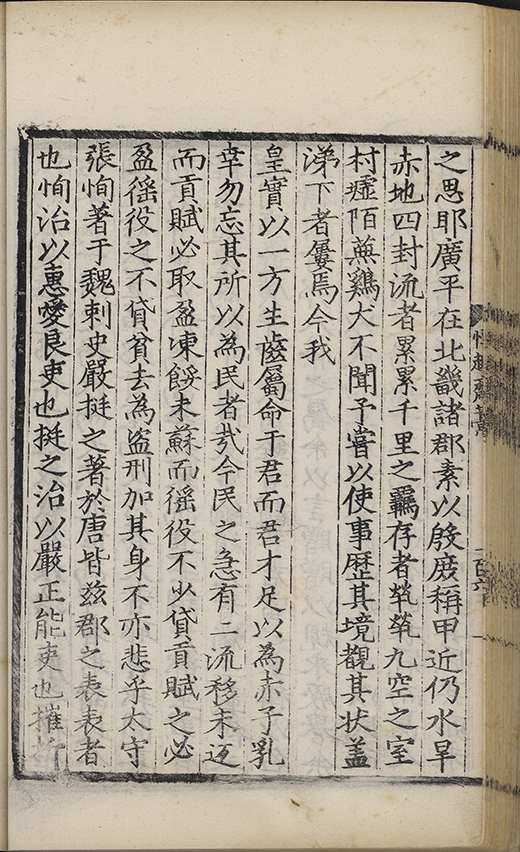 之思耶廣平在北畿諸郡素以殷庶稱甲近仍水旱
赤地四封流者累累千里之羈存者煢煢九空之室
村墟陌蕪鷄犬不聞予嘗以使事歷其境觀其状蓋
涕下者屢焉今我
皇實以一方生齒屬命于君而君才足以為赤子乳
幸勿忘其所以為民者㢤今民之急有二流移未还
而貢賦必取盈凍餒未蘇而徭役不少貸貢賦之必
盈徭役之不貸貧去為盗刑加其身不亦悲乎太守
張恂著于魏剌史嚴挺之著於唐皆兹郡之表表者
也恂治以惠愛良吏也挺之治以嚴正能吏也摧折
百六